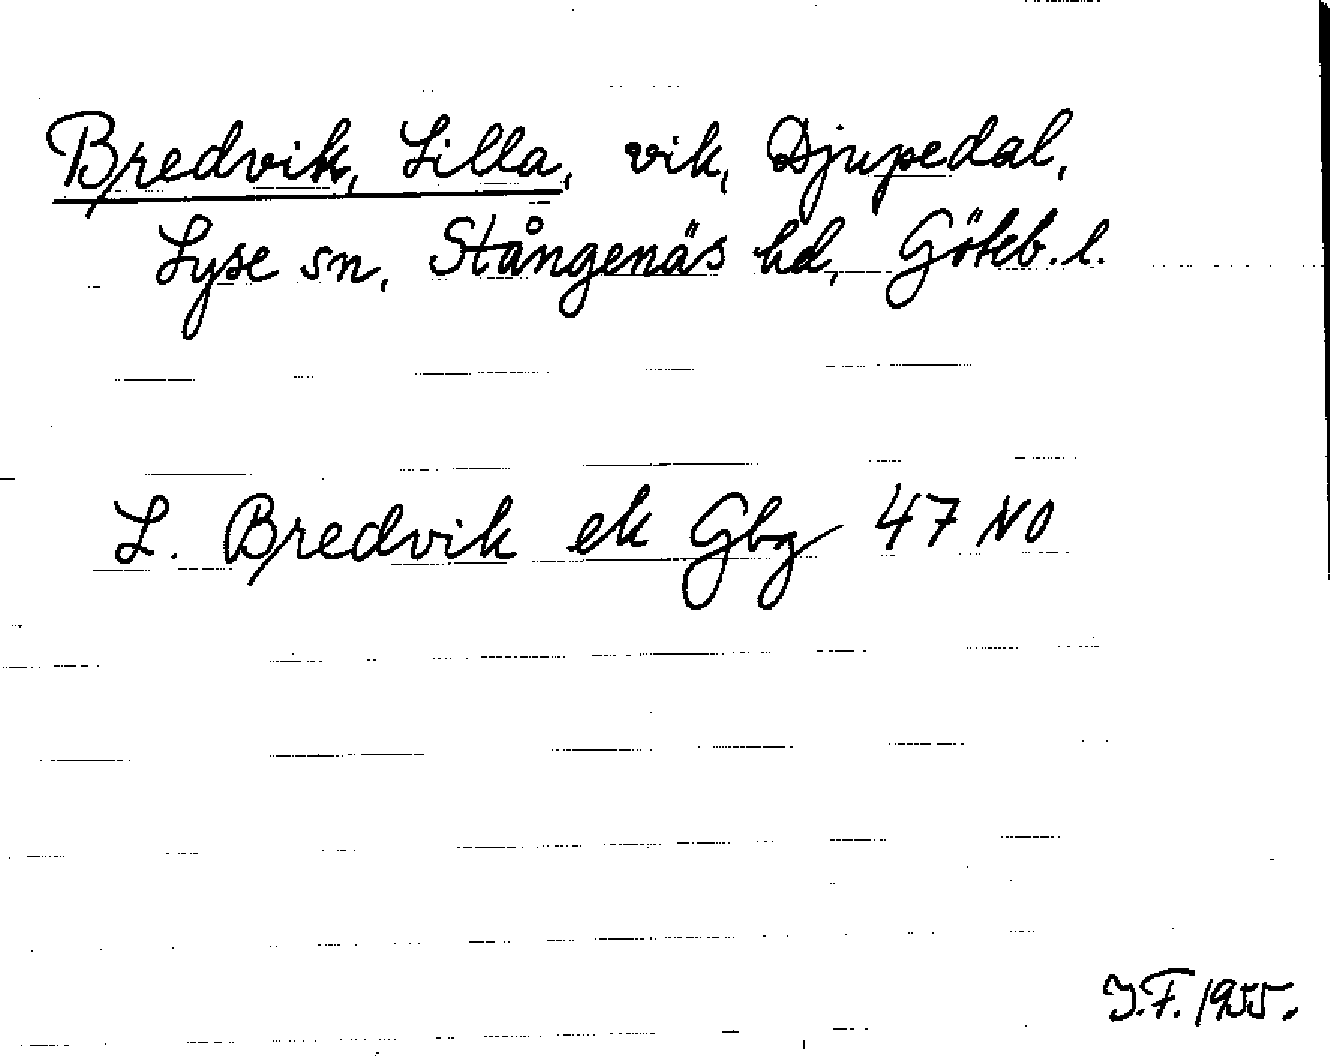 Bredvik, Lilla, vik, Djupedal,
Lyse sn, Stångenäs hd, Göteb. l.
L. Bredvik ek Gbg 47 NO
J.F. 1955.